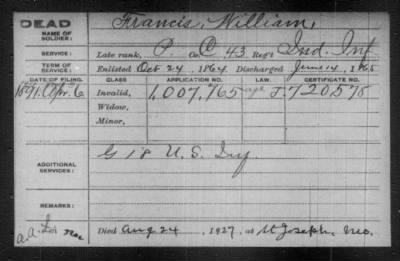 DEAD
NAME OF SOLDIER: Francis, William,
SERVICE: Late rank, P. Co. C, 43 Reg't Ind. Inf
TERM OF SERVICE: Enlisted Oct 24, 1864 Discharged June 14, 1865
DATE OF FILING. CLASS APPLICATION NO. LAW. CERTIFICATE NO.
1891. Apr. 6 Invalid, 1,007,765 J. 720575
Widow,
Minor,
ADDITIONAL SERVICES: G 18 U.S. Inf
REMARKS:
Died Aug 24, 1927, at St Joseph, Mo.